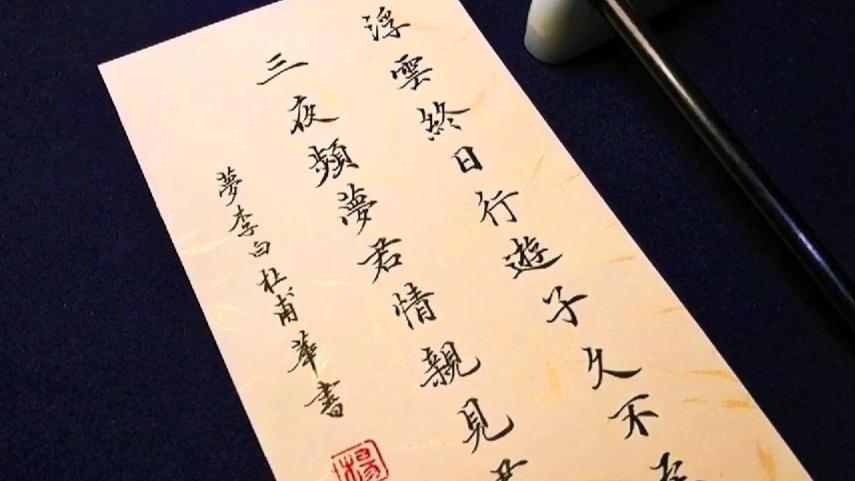 浮雲終日行遊子久不
三夜頻夢君情親見
夢李白杜甫華書
楊